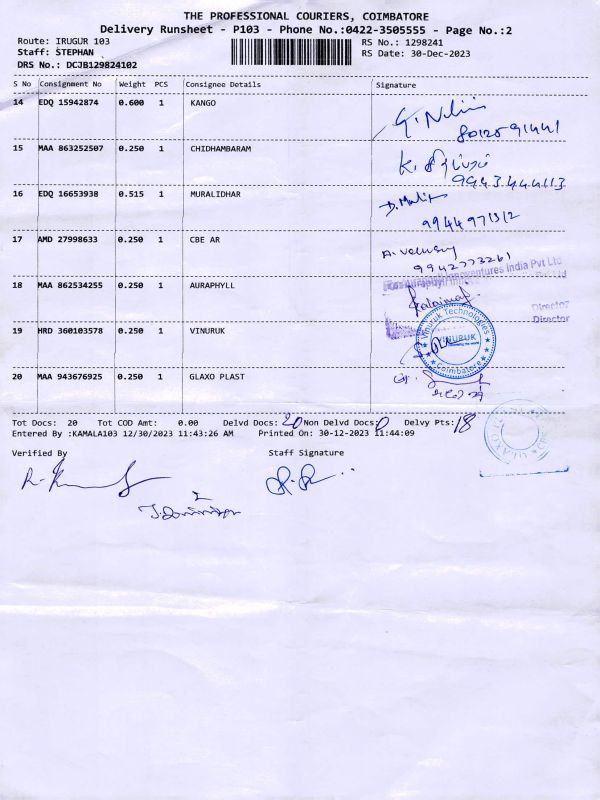 THE PROFESSIONAL COURIERS, COIMBATORE
Delivery Runsheet - P103 - Phone No.:0422-3505555 - Page No.:2
Route: IRUGUR 103
RS No.: 1298241
Staff: STEPHAN
RS Date: 30-Dec-2023
DRS No.: DCJB129824102
S No Consignment No Weight PCS Consignee Details Signature
14 EDQ 15942874 0.600 1 KANGO
G. Nalin
8012591441
15 MAA 863252507 0.250 1 CHIDHAMBARAM
K.
9943444113
16 EDQ 16653938 0.515 1 MURALIDHAR
D.
9944971312
17 AMD 27998633 0.250 1 CBE AR
A.
9942773261
18 MAA 862534255 0.250 1 AURAPHYLL
India Pvt Ltd
Director
Director
19 HRD 360103578 0.250 1 VINURUK
Vinuruk Technologies
VINURUK
Coimbatore
20 MAA 943676925 0.250 1 GLAXO PLAST
Tot Docs: 20 Tot COD Amt: 0.00 Delvd Docs: 20 Non Delvd Docs: 0 Delvy Pts: 18
Entered By :KAMALA103 12/30/2023 11:43:26 AM Printed On: 30-12-2023 11:44:09
Verified By Staff Signature